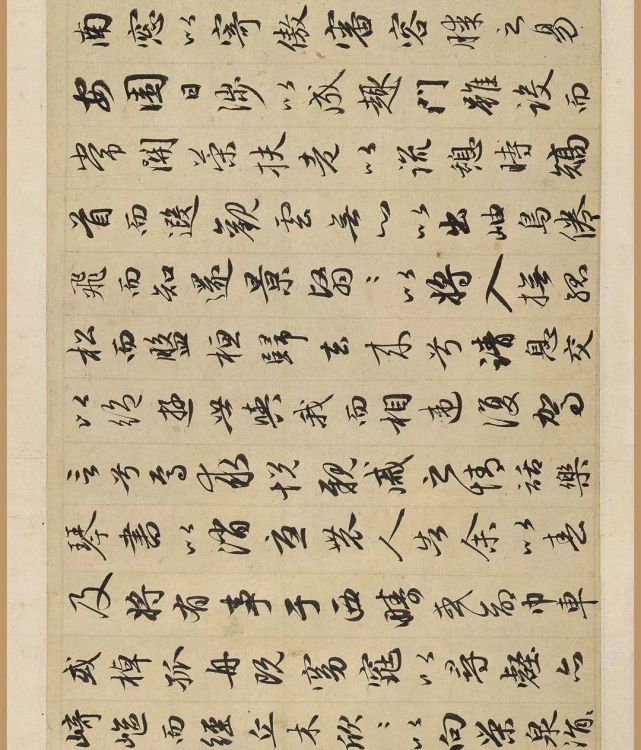 南窓以寄傲審容膝之易
安園日涉以成趣門雖設而
常關策扶老以流憩時矯
首而遐觀雲無心以出岫鳥倦
飛而知還景翳〻以將入撫孤
松而盤桓歸去来兮請息交
以絕遊世與我而相違復駕
言兮焉求悅親戚之情話樂
琴書以消憂農人告余以春
及將有事于西疇或命巾車
或棹孤舟既窈窕以尋壑亦
崎嶇而經丘木欣〻以向榮泉涓〻